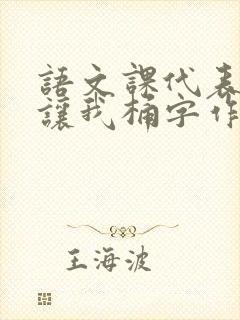 語文課代表
讓我桶字作
王海波